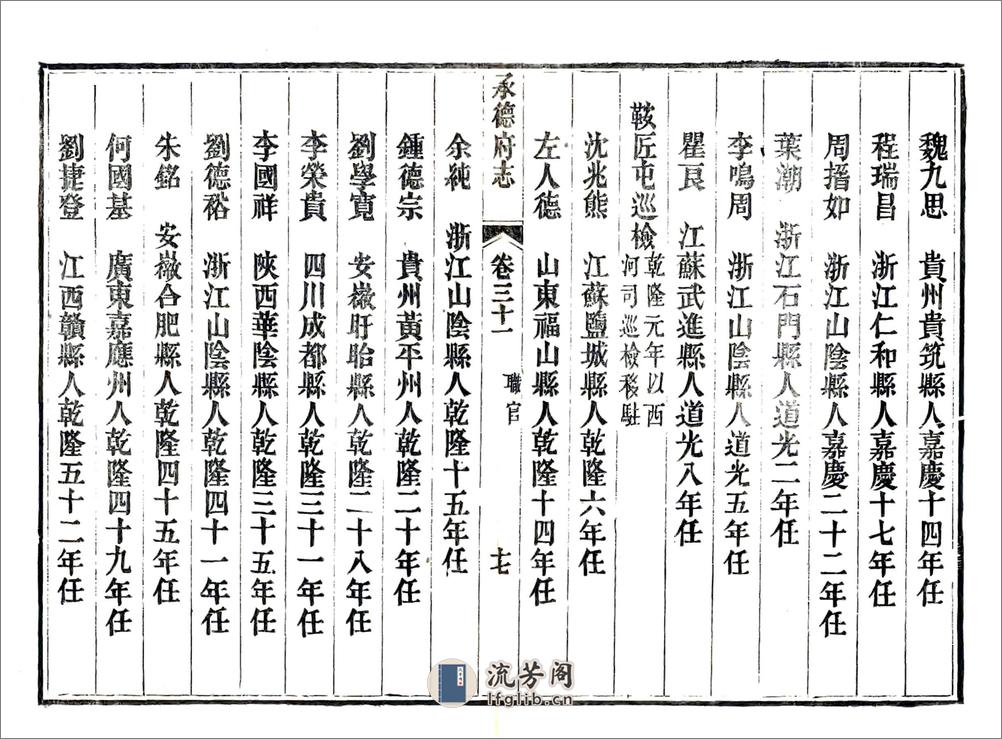 魏九思　貴州貴筑縣人嘉慶十四年任
程瑞昌　浙江仁和縣人嘉慶十七年任
周搢如　浙江山陰縣人嘉慶二十二年任
葉潮　浙江石門縣人道光二年任
李鳴周　浙江山陰縣人道光五年任
瞿良　江蘇武進縣人道光八年任
鞍匠屯巡檢乾隆元年以西河司巡檢移駐
沈兆熊　江蘇鹽城縣人乾隆六年任
左人德　山東福山縣人乾隆十四年任
承德府志　卷三十一　職官　十七
余純　浙江山陰縣人乾隆十五年任
鍾德宗　貴州黃平州人乾隆二十年任
劉學寬　安徽盱眙縣人乾隆二十八年任
李榮貴　四川成都縣人乾隆三十一年任
李國祥　陝西華陰縣人乾隆三十五年任
劉德裕　浙江山陰縣人乾隆四十一年任
朱銘　安徽合肥縣人乾隆四十五年任
何國基　廣東嘉應州人乾隆四十九年任
劉捷登　江西贛縣人乾隆五十二年任
流芳阁
lfglib.cn